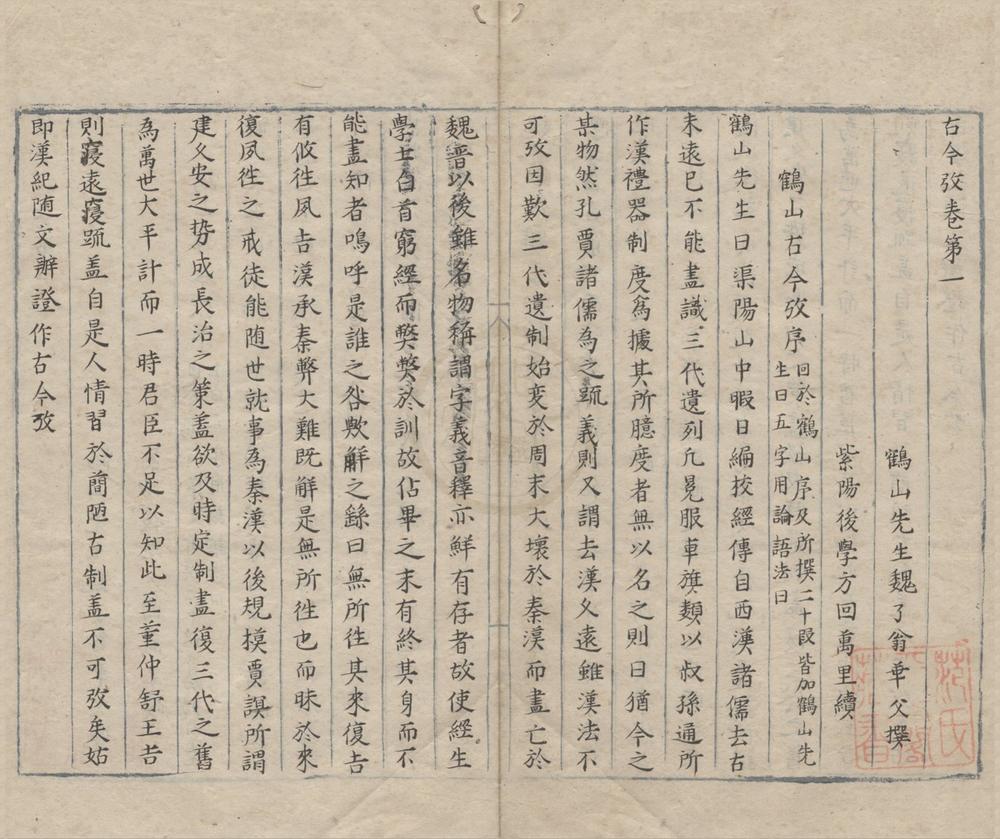 古今攷卷第一
鶴山先生魏了翁華父撰
紫陽後學方回萬里續
鶴山古今攷序
回於鶴山序及所撰二十叚皆加鶴山先
生曰五字用論語法曰
鶴山先生曰渠陽山中暇日編挍經傳自西漢諸儒去古
未遠已不能盡識三代遺列凢冕服車旗類以叔孫通所
作漢禮器制度爲據其所臆度者無以名之則曰猶今之
某物然孔賈諸儒為之䟽義則又謂去漢乆遠雖漢法不
可攷因歎三代遺制始变於周末大壞於秦漢而盡亡於
魏晉以後雖名物稱謂字義音釋亦鮮有存者故使經生
學士白首窮經而獘獘於訓故佔畢之末有終其身而不
能盡知者鳴呼是誰之咎歟解之繇曰無所徃其來復吉
有攸徃夙吉漢承秦弊大難既解是無所徃也而昧於來
復夙徃之戒徒能随世就事為秦漢以後規摸賈誼所謂
建乆安之势成長治之策蓋欲及時定制盡復三代之舊
為萬世大平計而一時君臣不足以知此至董仲舒王吉
則寖遠寖䟽盖自是人情習於簡陋古制盖不可攷矣姑
即漢紀随文辨證作古今攷